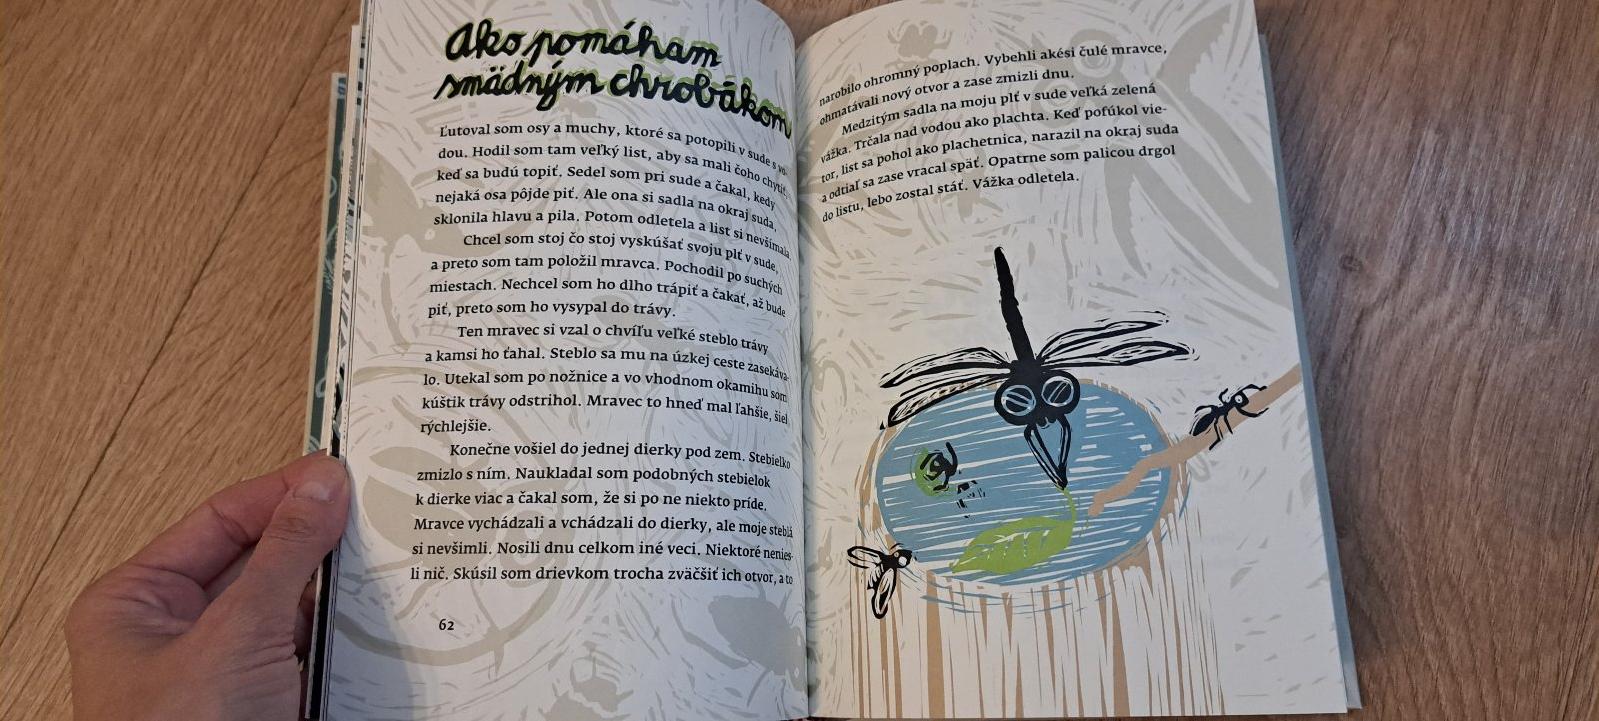 Ako pomáham
smädným chrobákom
Ľutoval som osy a muchy, ktoré sa potopili v sude s vo-
dou. Hodil som tam veľký list, aby sa mali čoho chytiť,
keď sa budú topiť. Sedel som pri sude a čakal, kedy
nejaká osa pôjde piť. Ale ona si sadla na okraj suda,
sklonila hlavu a pila. Potom odletela a list si nevšímala.
Chcel som stoj čo stoj vyskúšať svoju plť v sude,
a preto som tam položil mravca. Pochodil po suchých
miestach. Nechcel som ho dlho trápiť a čakať, až bude
piť, preto som ho vysypal do trávy.
Ten mravec si vzal o chvíľu veľké steblo trávy
a kamsi ho ťahal. Steblo sa mu na úzkej ceste zasekáva-
lo. Utekal som po nožnice a vo vhodnom okamihu som
kúštik trávy odstrihol. Mravec to hneď mal ľahšie, šiel
rýchlejšie.
Konečne vošiel do jednej dierky pod zem. Stebielko
zmizlo s ním. Naukladal som podobných stebielok
k dierke viac a čakal som, že si po ne niekto príde.
Mravce vychádzali a vchádzali do dierky, ale moje steblá
si nevšimli. Nosili dnu celkom iné veci. Niektoré nenies-
li nič. Skúsil som drievkom trocha zväčšiť ich otvor, a to
62
narobilo ohromný poplach. Vybehli akési čulé mravce,
ohmatávali nový otvor a zase zmizli dnu.
Medzitým sadla na moju plť v sude veľká zelená
vážka. Trčala nad vodou ako plachta. Keď pofúkol vie-
tor, list sa pohol ako plachetnica, narazil na okraj suda
a odtiaľ sa zase vracal späť. Opatrne som palicou drgol
do listu, lebo zostal stáť. Vážka odletela.